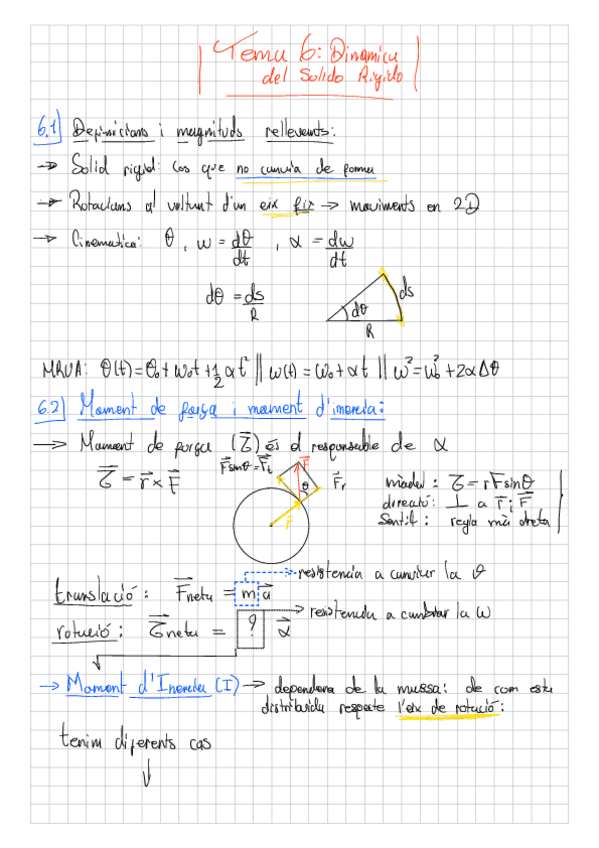 Tema 6: Dinamica
del Solido Rigido
6.1 Definicions i magnituds rellevents:
→ Solid rigid: cos que no canvia de forma
→ Rotacions al voltant d'un eix fix → moviments en 2D
→ Cinematica: θ , ω = dθ/dt , α = dω/dt
dθ = ds/R
dθ
ds
R
MRUA: θ(t) = θ₀ + ω₀t + 1/2 αt² || ω(t) = ω₀ + αt || ω² = ω₀² + 2αΔθ
6.2 Moment de força i moment d'inercia:
→ Moment de força (τ⃗) és el responsable de α
τ⃗ = r⃗ × F⃗
F⃗sinθ = F⃗t
F⃗
θ
F⃗r
r⃗
mòdul : τ = rFsinθ
direcció : ⊥ a r⃗ i F⃗
Sentit : regla mà dreta
resistencia a canviar la v
translació : F⃗neta = m a⃗
resistencia a cambiar la ω
rotució : τ⃗neta = ? α⃗
→ Moment d'Inercia (I) → dependera de la massa i de com esta
distribuida respecte l'eix de rotució:
tenim diferents cas